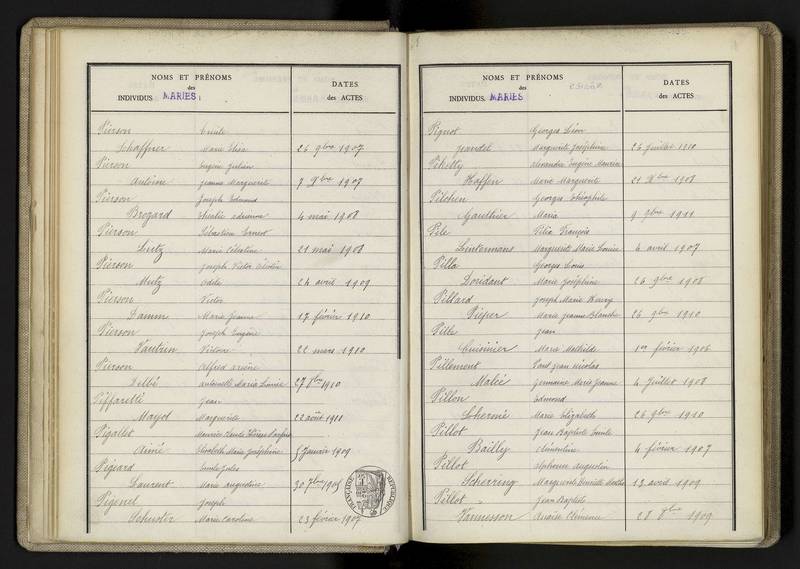 NOMS ET PRÉNOMS
des
INDIVIDUS MARIÉS
DATES
des ACTES
Pierson Emile
Schaffner Marie Elisa 26 9bre 1907
Pierson Eugène Julien
Antoine Jeanne Marguerite 7 Xbre 1907
Pierson Joseph Edmond
Brogard 4 mai 1908
Pierson Sébastien Ernest
Lentz Marie Célestine 21 mai 1908
Pierson Joseph Victor
Mutz Odile 24 avril 1909
Pierson Victor
Damm Marie Jeanne 17 février 1910
Pierson Joseph Eugène
Vautrin Victoire 22 mars 1910
Pierson Alfred
Delbé Antoinette Maria 27 1910
Piffaretti Jean
Mayol Marguerite 22 août 1911
Pigallet Maurice
Aimé Elisabeth Marie Joséphine 5 Janvier 1909
Pigeard Emile Jules
Laurent Marie Augustine 30 7bre 1905
Pigenel Joseph
Schuster Marie Caroline 23 février 1907
NOMS ET PRÉNOMS
des
INDIVIDUS MARIÉS
DATES
des ACTES
Pignot Georges Léon
Jeandel Marguerite Joséphine 26 Juillet 1910
Alexandre Eugène Maurice
Haffen Marie Marguerite 21 Xbre 1908
Pilchen Georges Théophile
Gauthier Maria 9 9bre 1911
Pile François
Lintermans Marguerite Marie Louise 4 avril 1907
Pilla Georges Louis
Doridant Marie Joséphine 26 9bre 1908
Pillard Joseph Marie Henry
Pieper Marie Jeanne Blanche 26 9bre 1910
Pille Jean
Cuisinier Marie Mathilde 1er février 1906
Pillement Paul Jean Nicolas
Malié Germaine Marie Jeanne 4 Juillet 1908
Pillon Edmond
Marie Elizabeth 26 9bre 1910
Pillot Jean Baptiste Emile
Bailly Clémentine 4 février 1907
Pillot Alphonse Augustin
Scherring Marguerite Henriette Marthe 13 avril 1909
Pillot Jean Baptiste
Vannesson Anaïse Clémence 28 8bre 1909